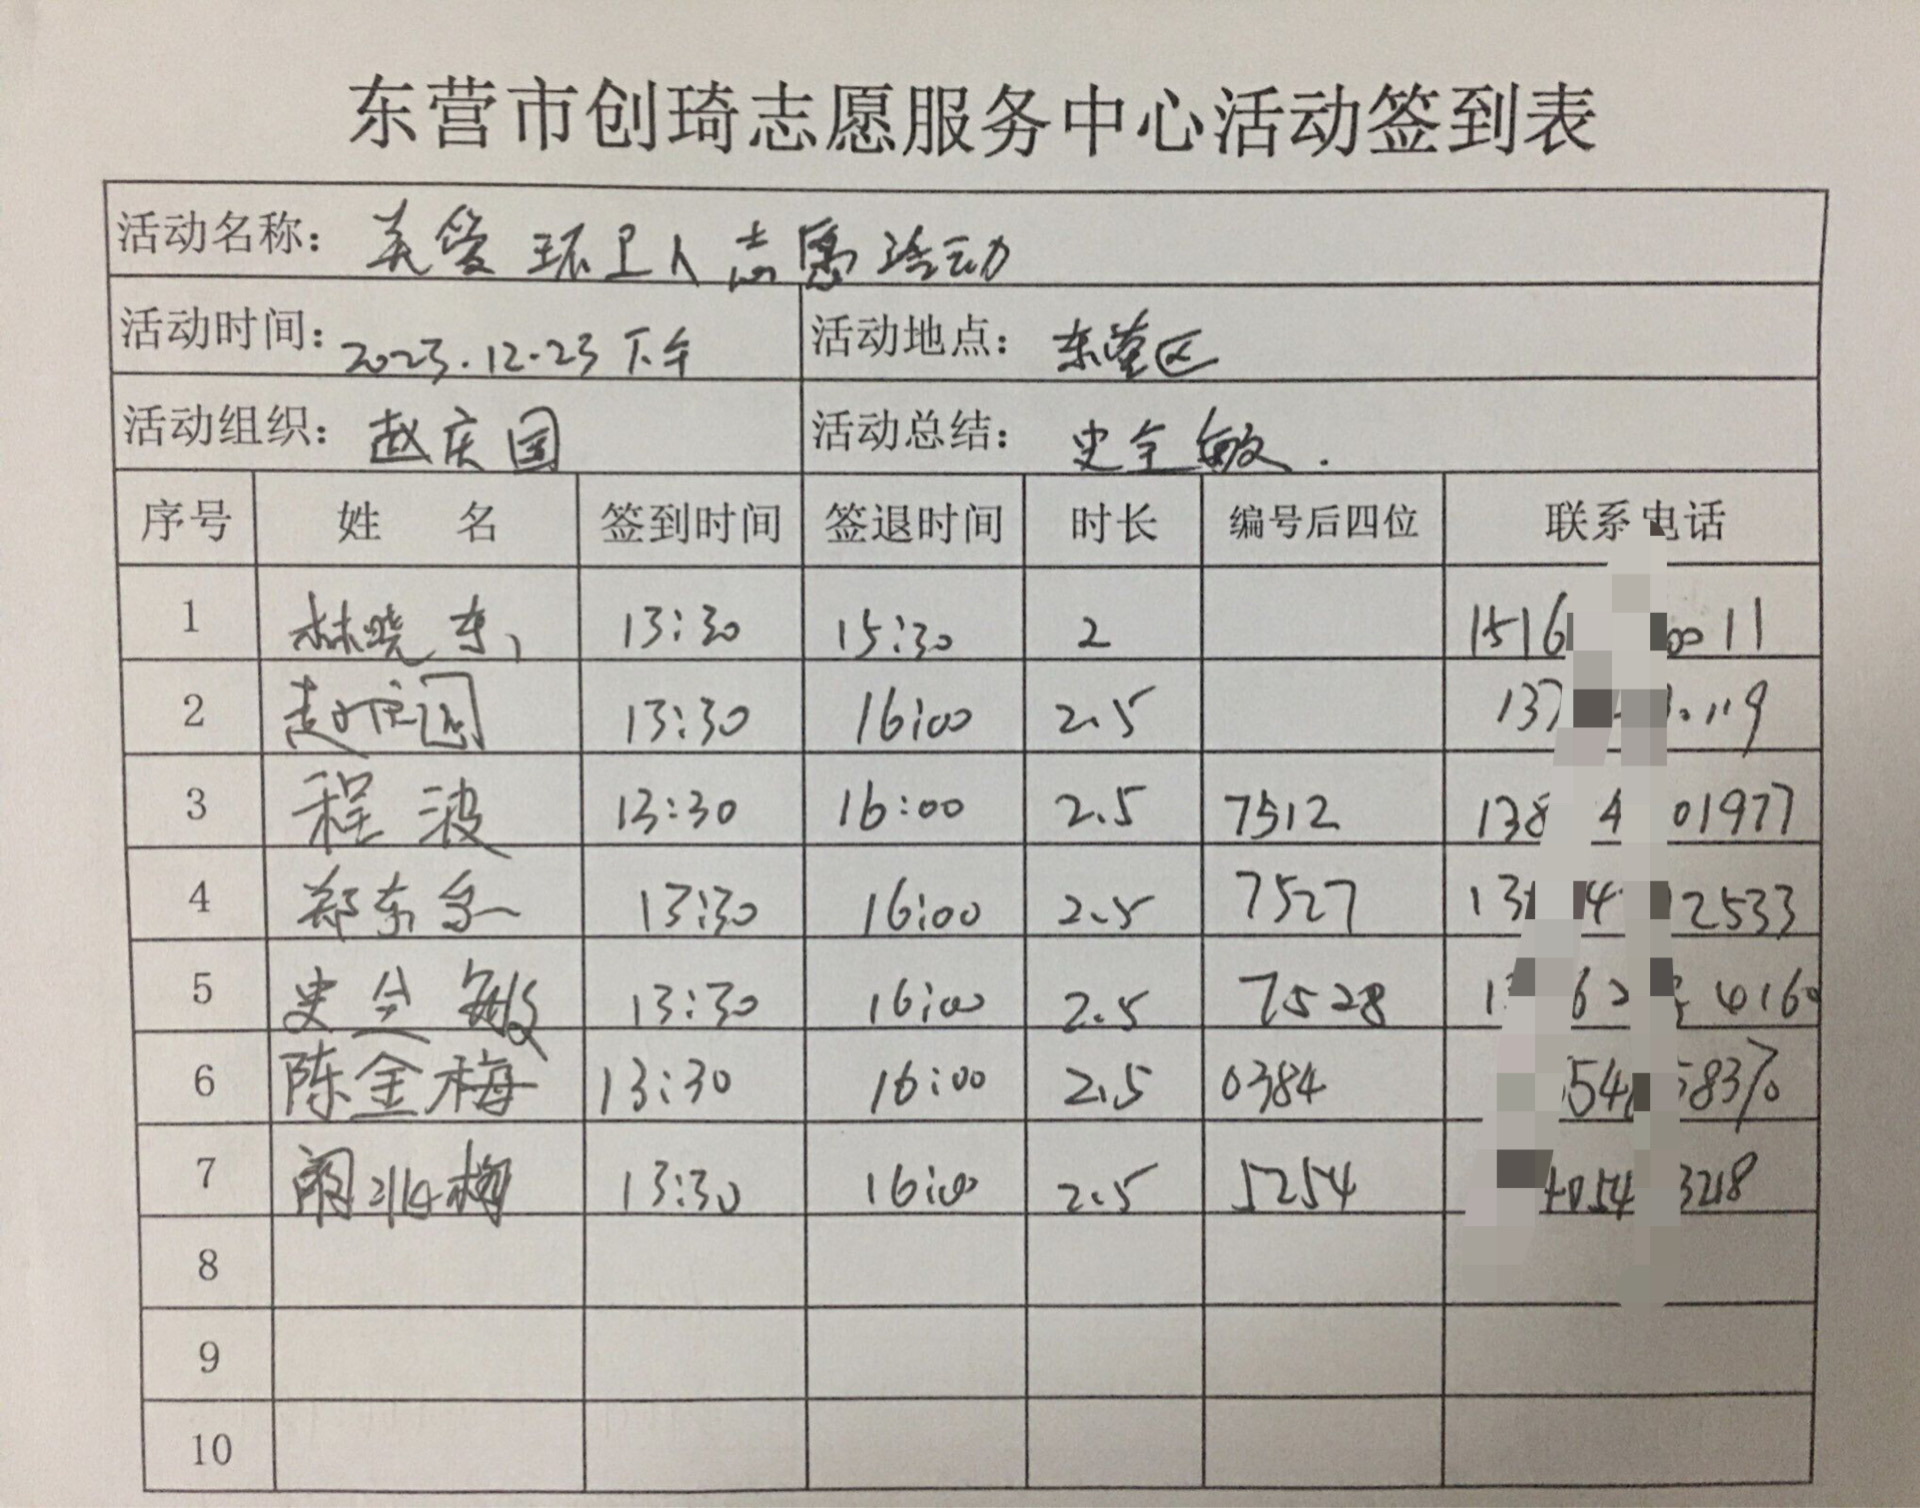 东营市创琦志愿服务中心活动签到表
活动名称： 关爱环卫人志愿活动
活动时间：2023.12.23下午 活动地点： 东营区
活动组织： 赵庆国 活动总结： 史全敏.
序号 姓 名 签到时间 签退时间 时长 编号后四位 联系电话
1 林晓东 13:30 15:30 2 1516 0011
2 赵庆国 13:30 16:00 2.5 137 119
3 程波 13:30 16:00 2.5 7512 138 4 01977
4 郑东 13:30 16:00 2.5 7527 13 4 2533
5 史全敏 13:30 16:00 2.5 7528 1 62 4160
6 陈金梅 13:30 16:00 2.5 0384 54 5837
7 梅 13:30 16:00 2.5 5254 054 3218
8
9
10